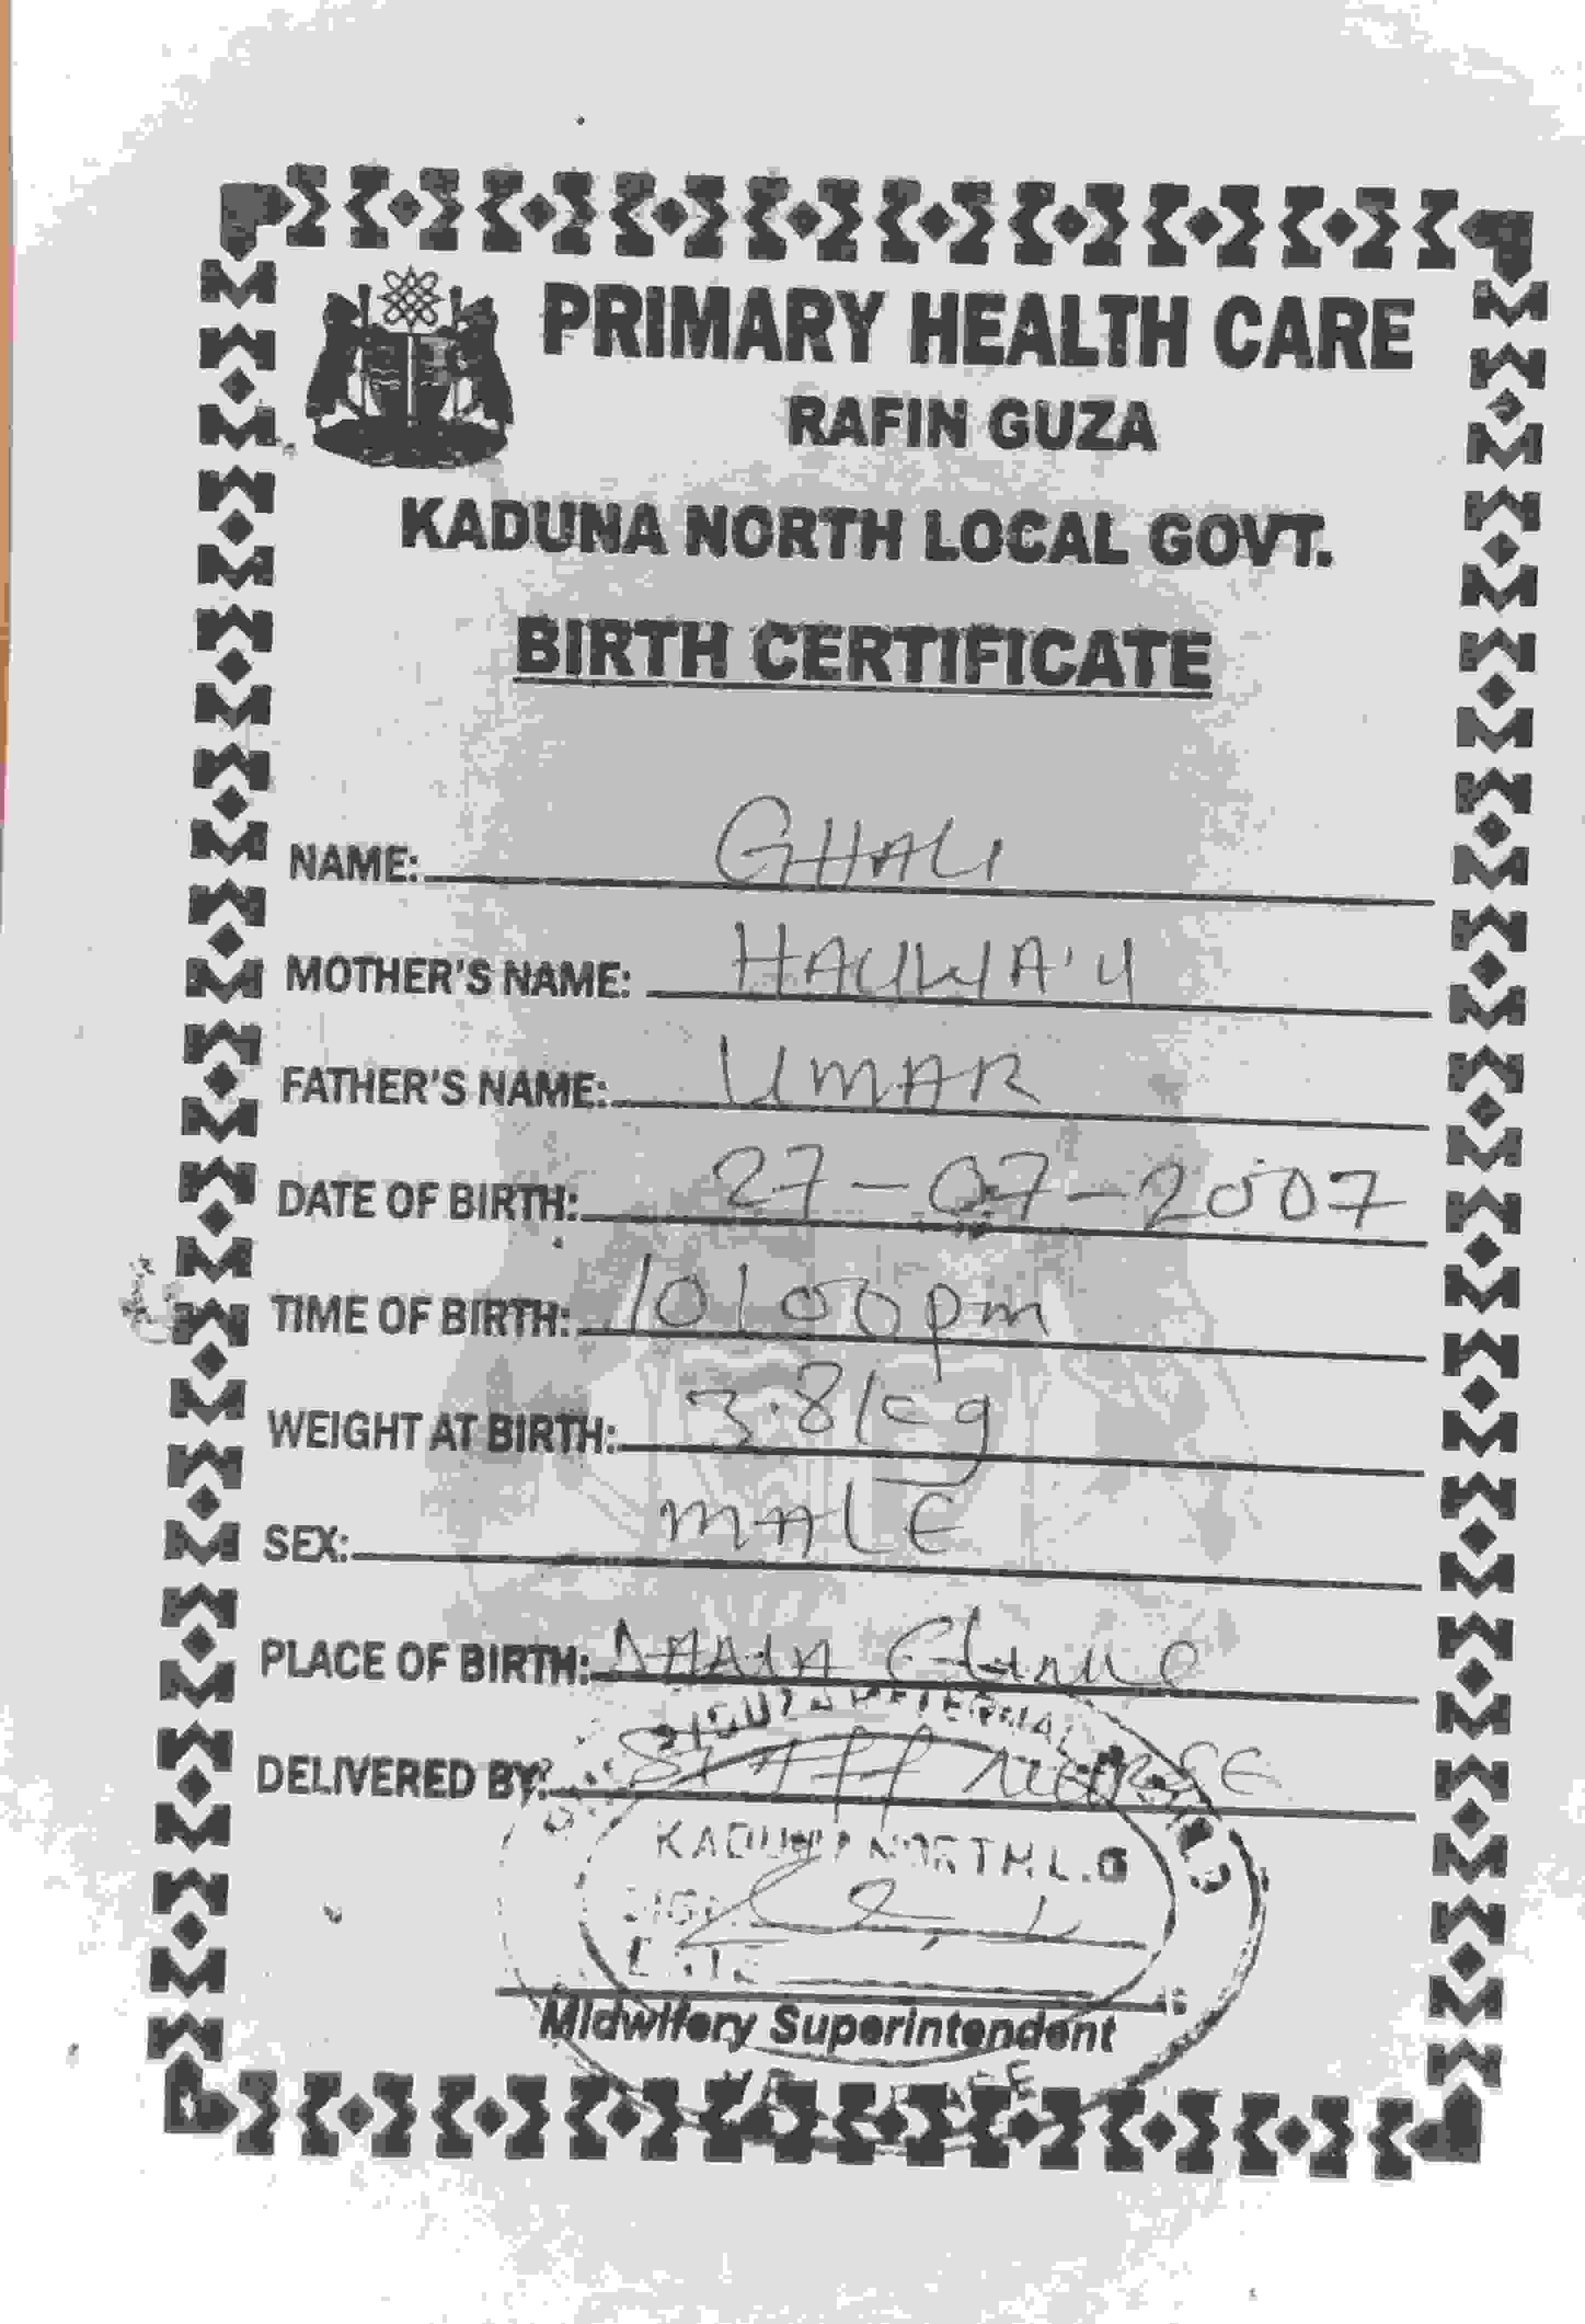 PRIMARY HEALTH CARE
RAFIN GUZA
KADUNA NORTH LOCAL GOVT.
BIRTH CERTIFICATE
NAME: GHALI
MOTHER'S NAME: HAUWA'U
FATHER'S NAME: UMAR
DATE OF BIRTH: 27-07-2007
TIME OF BIRTH: 10:00pm
WEIGHT AT BIRTH: 3.8kg
SEX: MALE
PLACE OF BIRTH:
DELIVERED BY: STAFF NURSE
KADUNA NORTH L.G
SIGN
DATE
Midwifery Superintendent